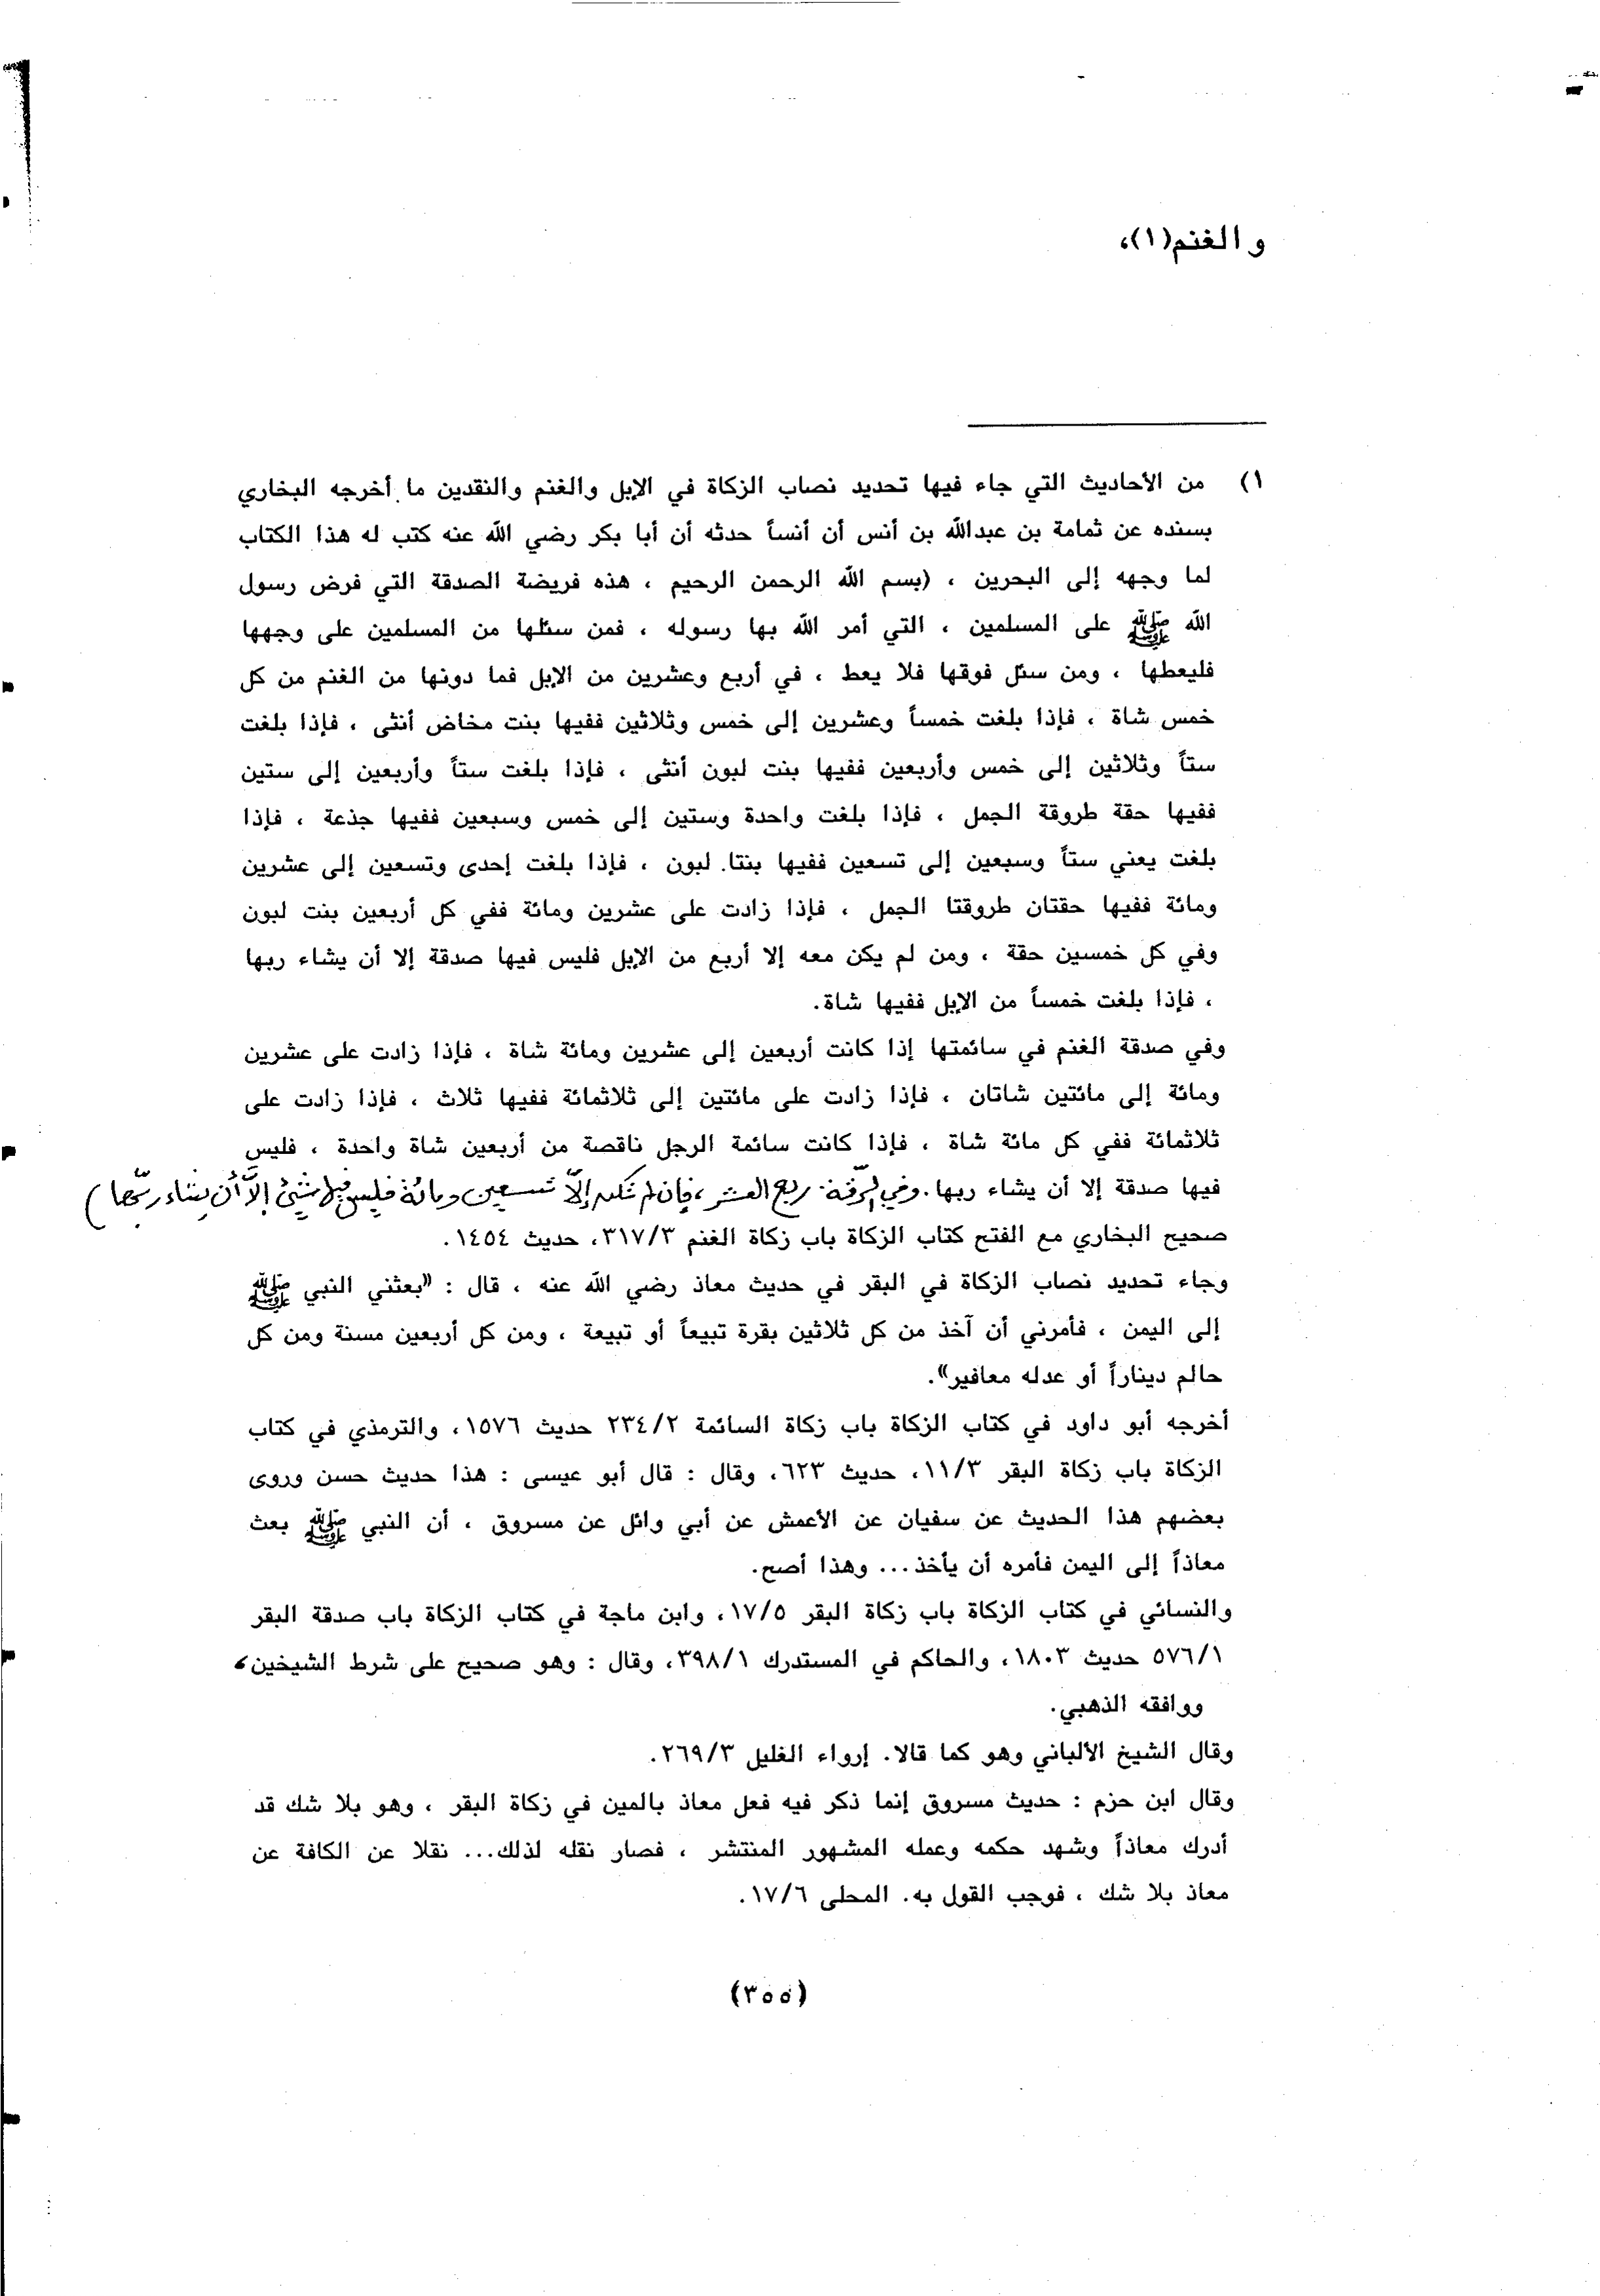 والغنم(١)،
١) من الأحاديث التي جاء فيها تحديد نصاب الزكاة في الإبل والغنم والنقدين ما أخرجه البخاري
بسنده عن ثمامة بن عبدالله بن أنس أن أنساً حدثه أن أبا بكر رضي الله عنه كتب له هذا الكتاب
لما وجهه إلى البحرين ، (بسم الله الرحمن الرحيم ، هذه فريضة الصدقة التي فرض رسول
الله ﷺ على المسلمين ، التي أمر الله بها رسوله ، فمن سئلها من المسلمين على وجهها
فليعطها ، ومن سئل فوقها فلا يعط ، في أربع وعشرين من الإبل فما دونها من الغنم من كل
خمس شاة ، فإذا بلغت خمساً وعشرين إلى خمس وثلاثين ففيها بنت مخاض أنثى ، فإذا بلغت
ستاً وثلاثين إلى خمس وأربعين ففيها بنت لبون أنثى ، فإذا بلغت ستاً وأربعين إلى ستين
ففيها حقة طروقة الجمل ، فإذا بلغت واحدة وستين إلى خمس وسبعين ففيها جذعة ، فإذا
بلغت يعني ستاً وسبعين إلى تسعين ففيها بنتا. لبون ، فإذا بلغت إحدى وتسعين إلى عشرين
ومائة ففيها حقتان طروقتا الجمل ، فإذا زادت على عشرين ومائة ففي كل أربعين بنت لبون
وفي كل خمسين حقة ، ومن لم يكن معه إلا أربع من الإبل فليس فيها صدقة إلا أن يشاء ربها
، فإذا بلغت خمساً من الإبل ففيها شاة.
وفي صدقة الغنم في سائمتها إذا كانت أربعين إلى عشرين ومائة شاة ، فإذا زادت على عشرين
ومائة إلى مائتين شاتان ، فإذا زادت على مائتين إلى ثلاثمائة ففيها ثلاث ، فإذا زادت على
ثلاثمائة ففي كل مائة شاة ، فإذا كانت سائمة الرجل ناقصة من أربعين شاة واحدة ، فليس
فيها صدقة إلا أن يشاء ربها. وفي الرقّة ربع العشر ، فإن لم تكن إلاّ تسعين ومائة فليس فيها شيئ إلاَّ أن يشاء ربّها )
صحيح البخاري مع الفتح كتاب الزكاة باب زكاة الغنم ٣١٧/٣، حديث ١٤٥٤.
وجاء تحديد نصاب الزكاة في البقر في حديث معاذ رضي الله عنه ، قال : «بعثني النبي ﷺ
إلى اليمن ، فأمرني أن آخذ من كل ثلاثين بقرة تبيعاً أو تبيعة ، ومن كل أربعين مسنة ومن كل
حالم ديناراً أو عدله معافير».
أخرجه أبو داود في كتاب الزكاة باب زكاة السائمة ٢٣٤/٢ حديث ١٥٧٦، والترمذي في كتاب
الزكاة باب زكاة البقر ١١/٣، حديث ٦٢٣، وقال : قال أبو عيسى : هذا حديث حسن وروى
بعضهم هذا الحديث عن سفيان عن الأعمش عن أبي وائل عن مسروق ، أن النبي ﷺ بعث
معاذاً إلى اليمن فأمره أن يأخذ... وهذا أصح.
والنسائي في كتاب الزكاة باب زكاة البقر ١٧/٥، وابن ماجة في كتاب الزكاة باب صدقة البقر
٥٧٦/١ حديث ١٨٠٣، والحاكم في المستدرك ٣٩٨/١، وقال : وهو صحيح على شرط الشيخين،
ووافقه الذهبي.
وقال الشيخ الألباني وهو كما قالا. إرواء الغليل ٢٦٩/٣.
وقال ابن حزم : حديث مسروق إنما ذكر فيه فعل معاذ بالمين في زكاة البقر ، وهو بلا شك قد
أدرك معاذاً وشهد حكمه وعمله المشهور المنتشر ، فصار نقله لذلك... نقلا عن الكافة عن
معاذ بلا شك ، فوجب القول به. المحلى ١٧/٦.
(٣٥٥)